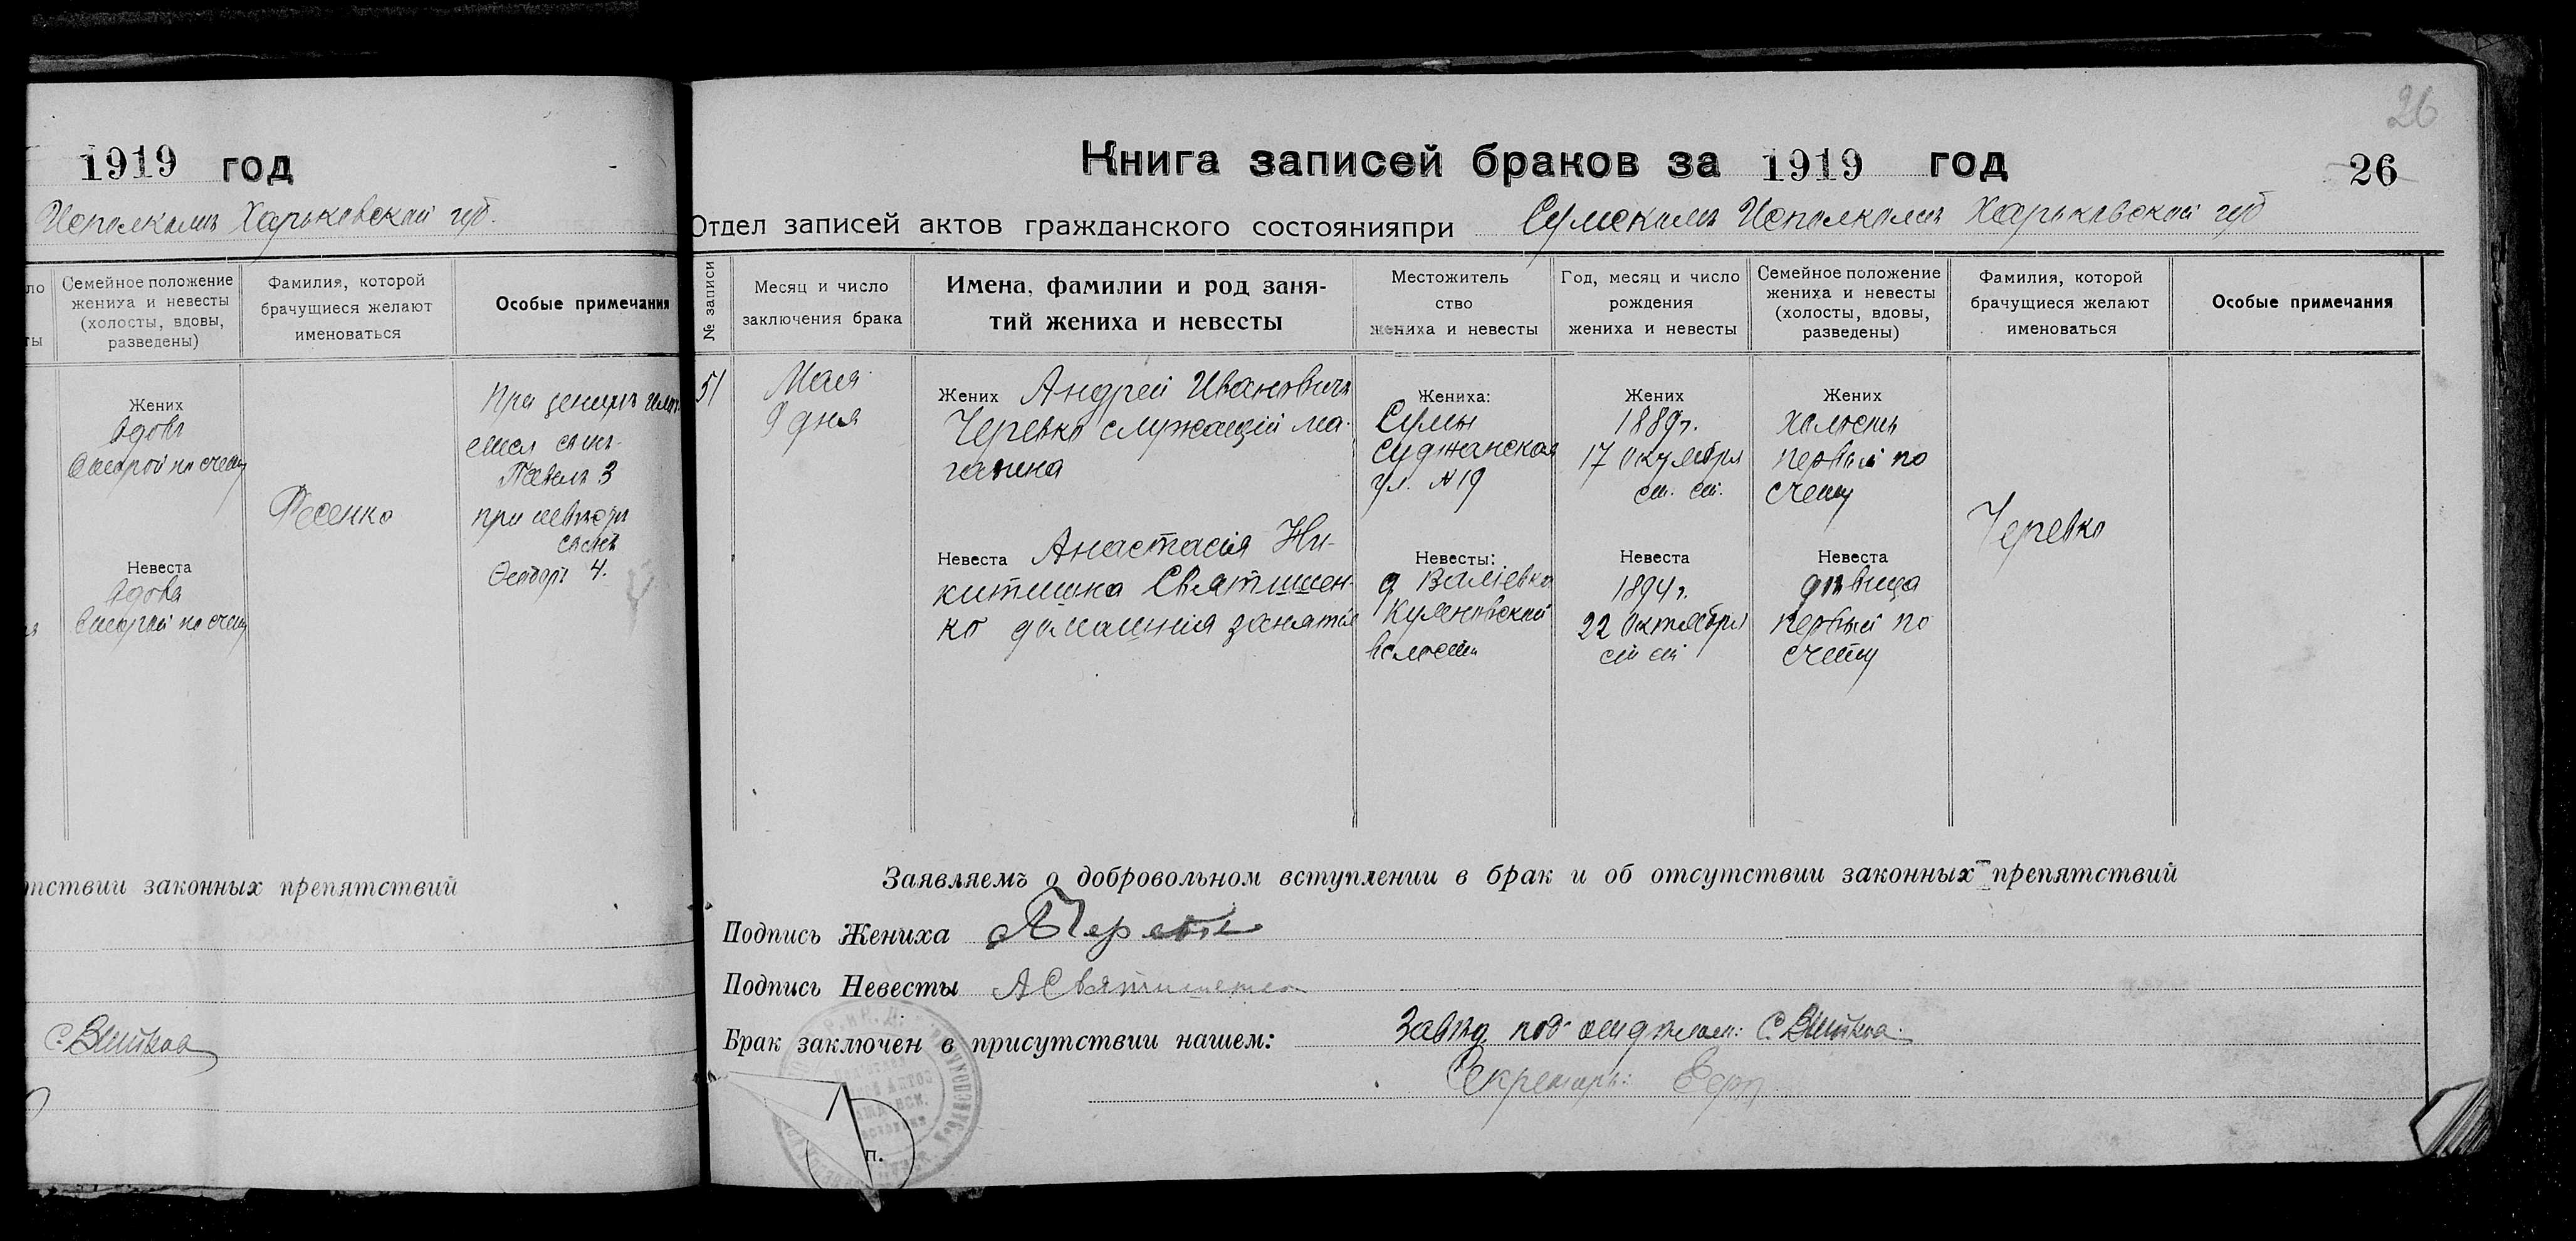 1919 год
Исполкомъ Харьковской губ.
Семейное положение
жениха и невесты
(холосты, вдовы,
разведены)
Фамилия, которой
брачущиеся желают
именоваться
Особые примечания
Жених
Вдовъ
Второй по счету
Невеста
Вдова
Второй по счету
Фесенко
При женихъ
сынъ
Павелъ 3
при невѣстѣ
сынъ
Федоръ 4.
тствии законных препятствий
26
Книга записей браков за 1919 год
26
Отдел записей актов гражданского состоянияпри Сумскомъ Исполкомъ Харьковской губ
№ записи
Месяц и число
заключения брака
Имена, фамилии и род заня-
тий жениха и невесты
Местожитель
ство
жениха и невесты
Год, месяц и число
рождения
жениха и невесты
Семейное положение
жениха и невесты
(холосты, вдовы,
разведены)
Фамилия, которой
брачущиеся желают
именоваться
Особые примечания
51
Мая
9 дня
Жених Андрей Ивановичъ
Черевко служащій ма-
газина
Невеста Анастасія Ни-
китишна Святишен-
ко домашнія занятія
Жениха:
Сумы
Суджанская
ул. № 19
Невесты:
волости
Жених
1889г.
17 Октября
ст. ст.
Невеста
1894г.
22 Октября
ст ст
Жених
Холостъ
первый по
счету
Невеста
дѣвица
первый по
счету
Черевко
Заявляемъ о добровольном вступлении в брак и об отсутствии законных препятствий
Подпись Жениха АЧеревко
Подпись Невесты АСвятишенко
Брак заключен в присутствии нашем: Завѣд. под отдѣлом:
Секретарь:
п.